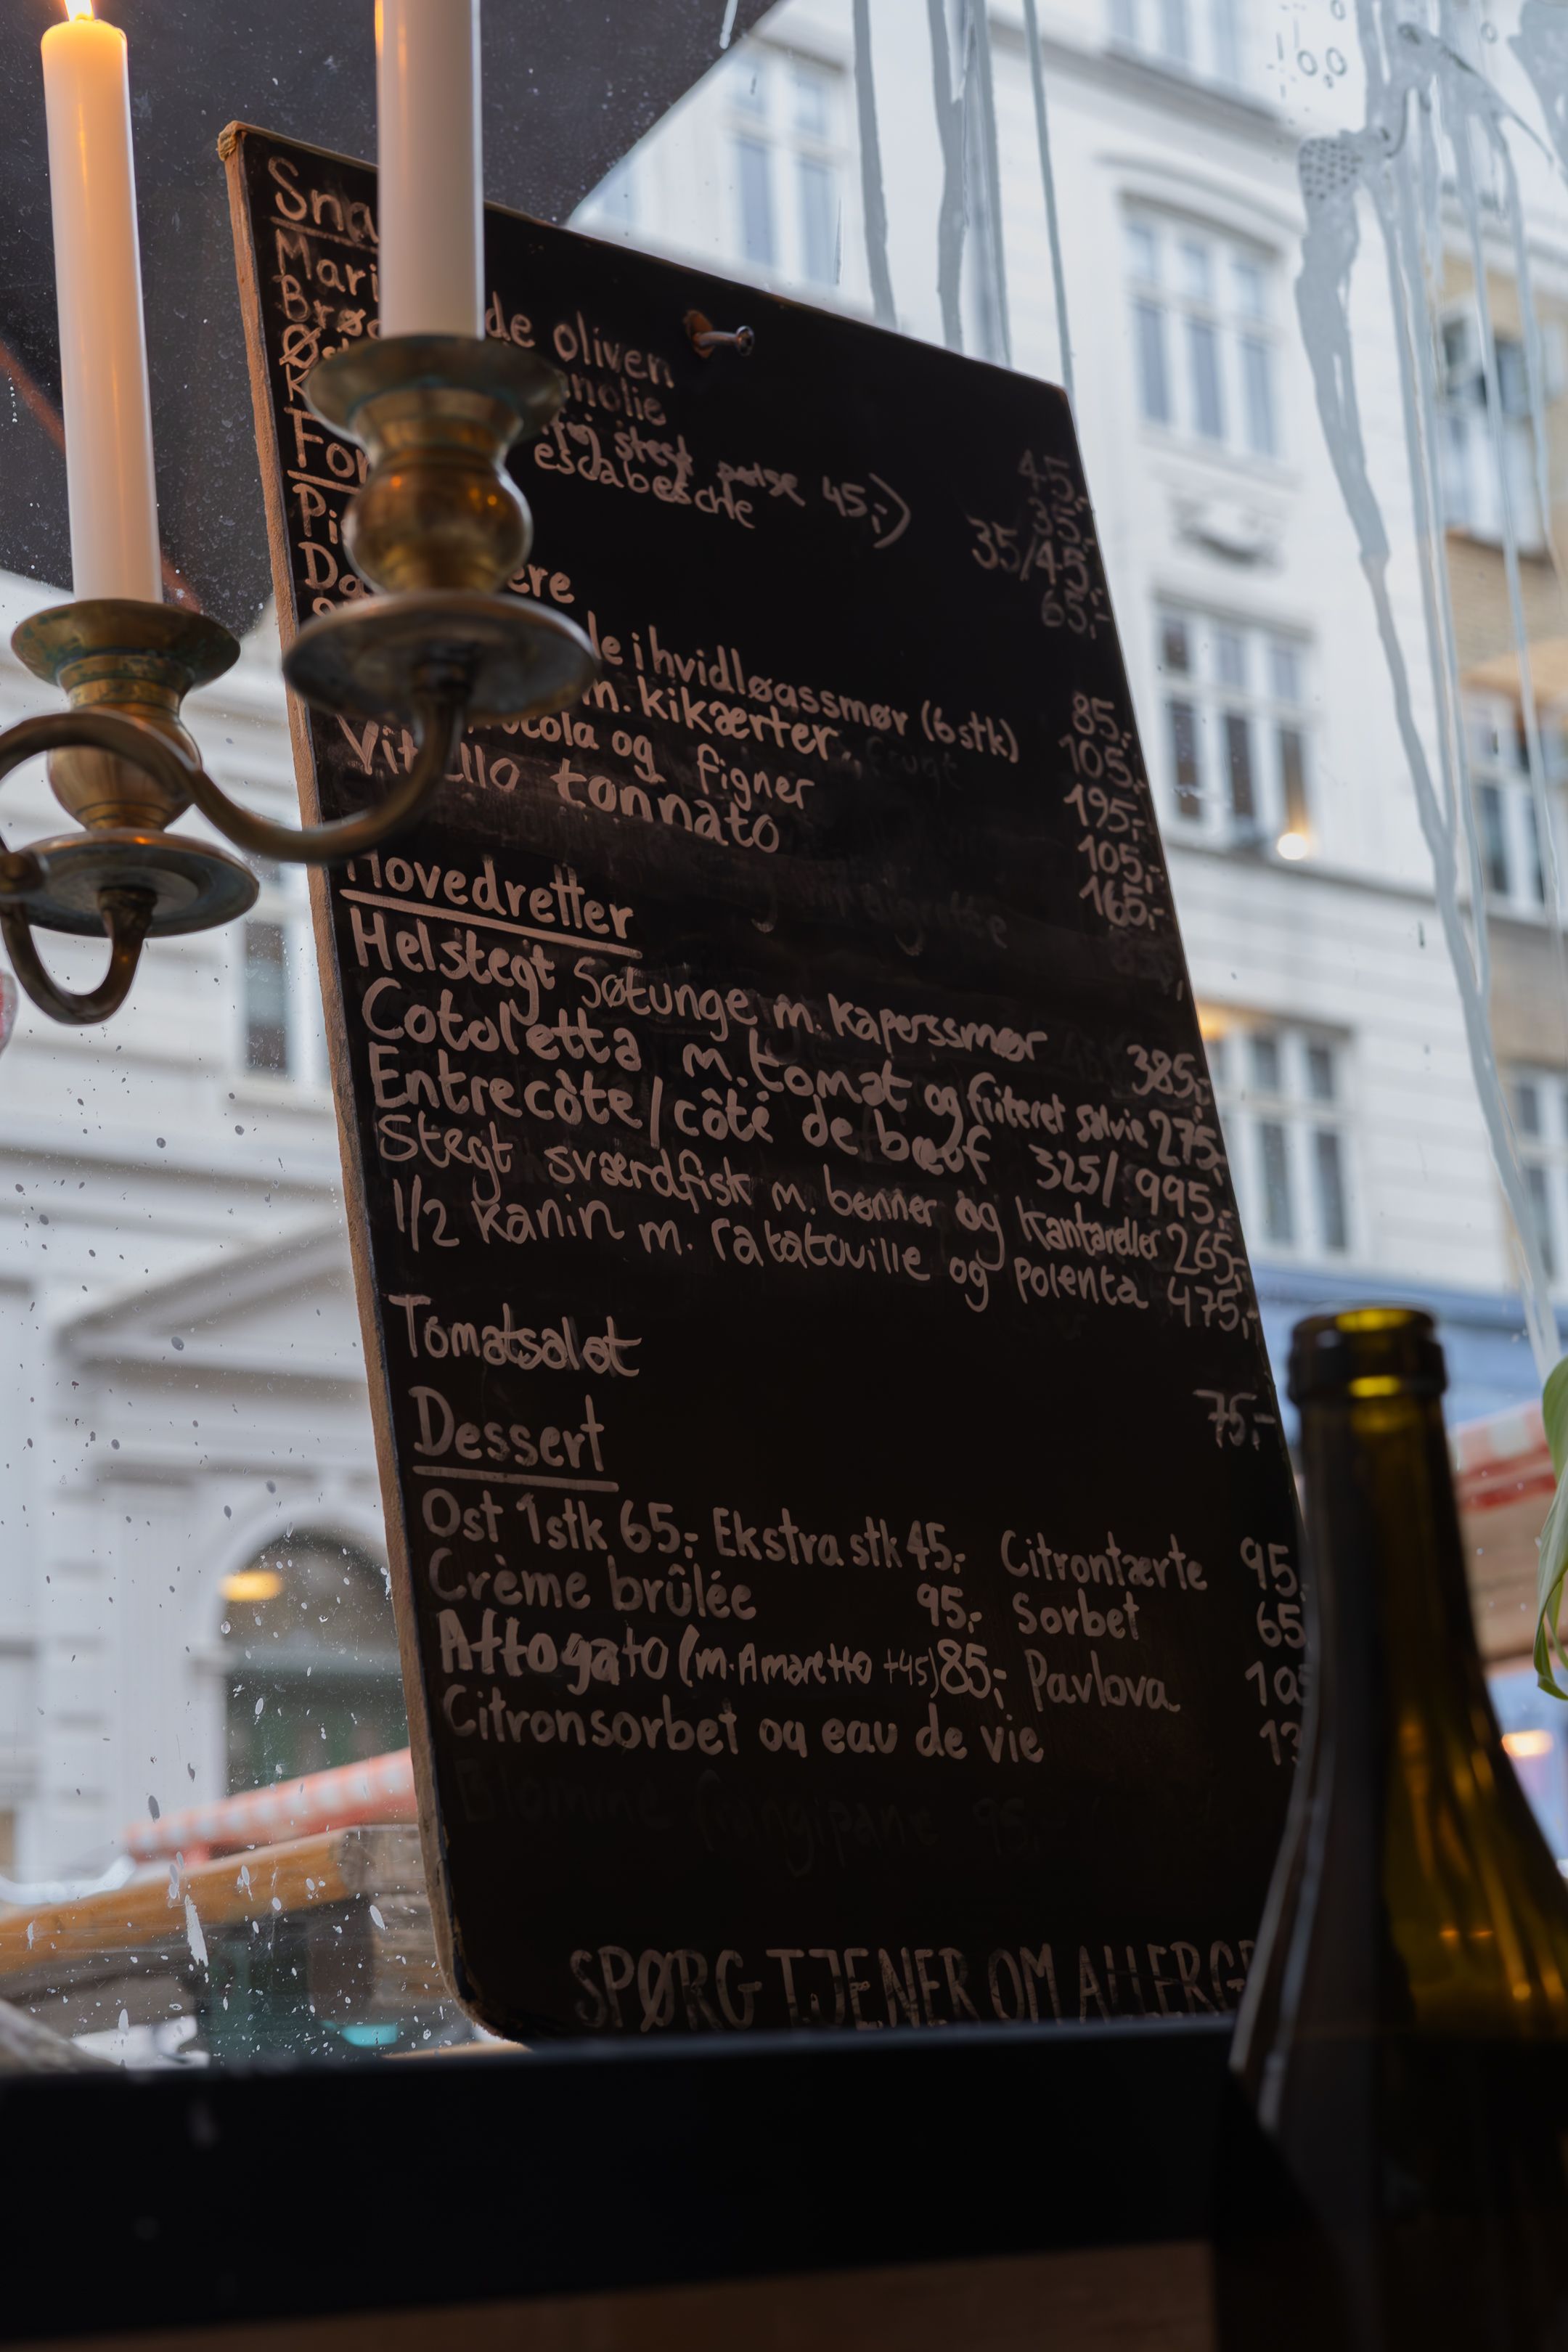 de oliven 45,-
35,-
stegt pølse 45,-) 35/45,-
escabesche 65,-
i hvidløgssmør (6 stk) 85,-
m. kikærter 105,-
og figner 195,-
tonnato 105,-
165,-
Hovedretter
Helstegt Søtunge m. kaperssmør 385,-
Cotoletta m. tomat og friteret salvie 275,-
Entrecôte/côté de bœuf 325/995,-
Stegt sværdfisk m. bønner og kantareller 265,-
1/2 kanin m. ratatouille og polenta 475,-
Tomatsalat 75,-
Dessert
Ost 1stk 65,- Ekstra stk 45,- Citrontærte 95,
Crème brûlée 95,- Sorbet 65
Affogato (m. Amaretto +45) 85,- Pavlova
Citronsorbet og eau de vie
frangipane 95,-
SPØRG TJENER OM